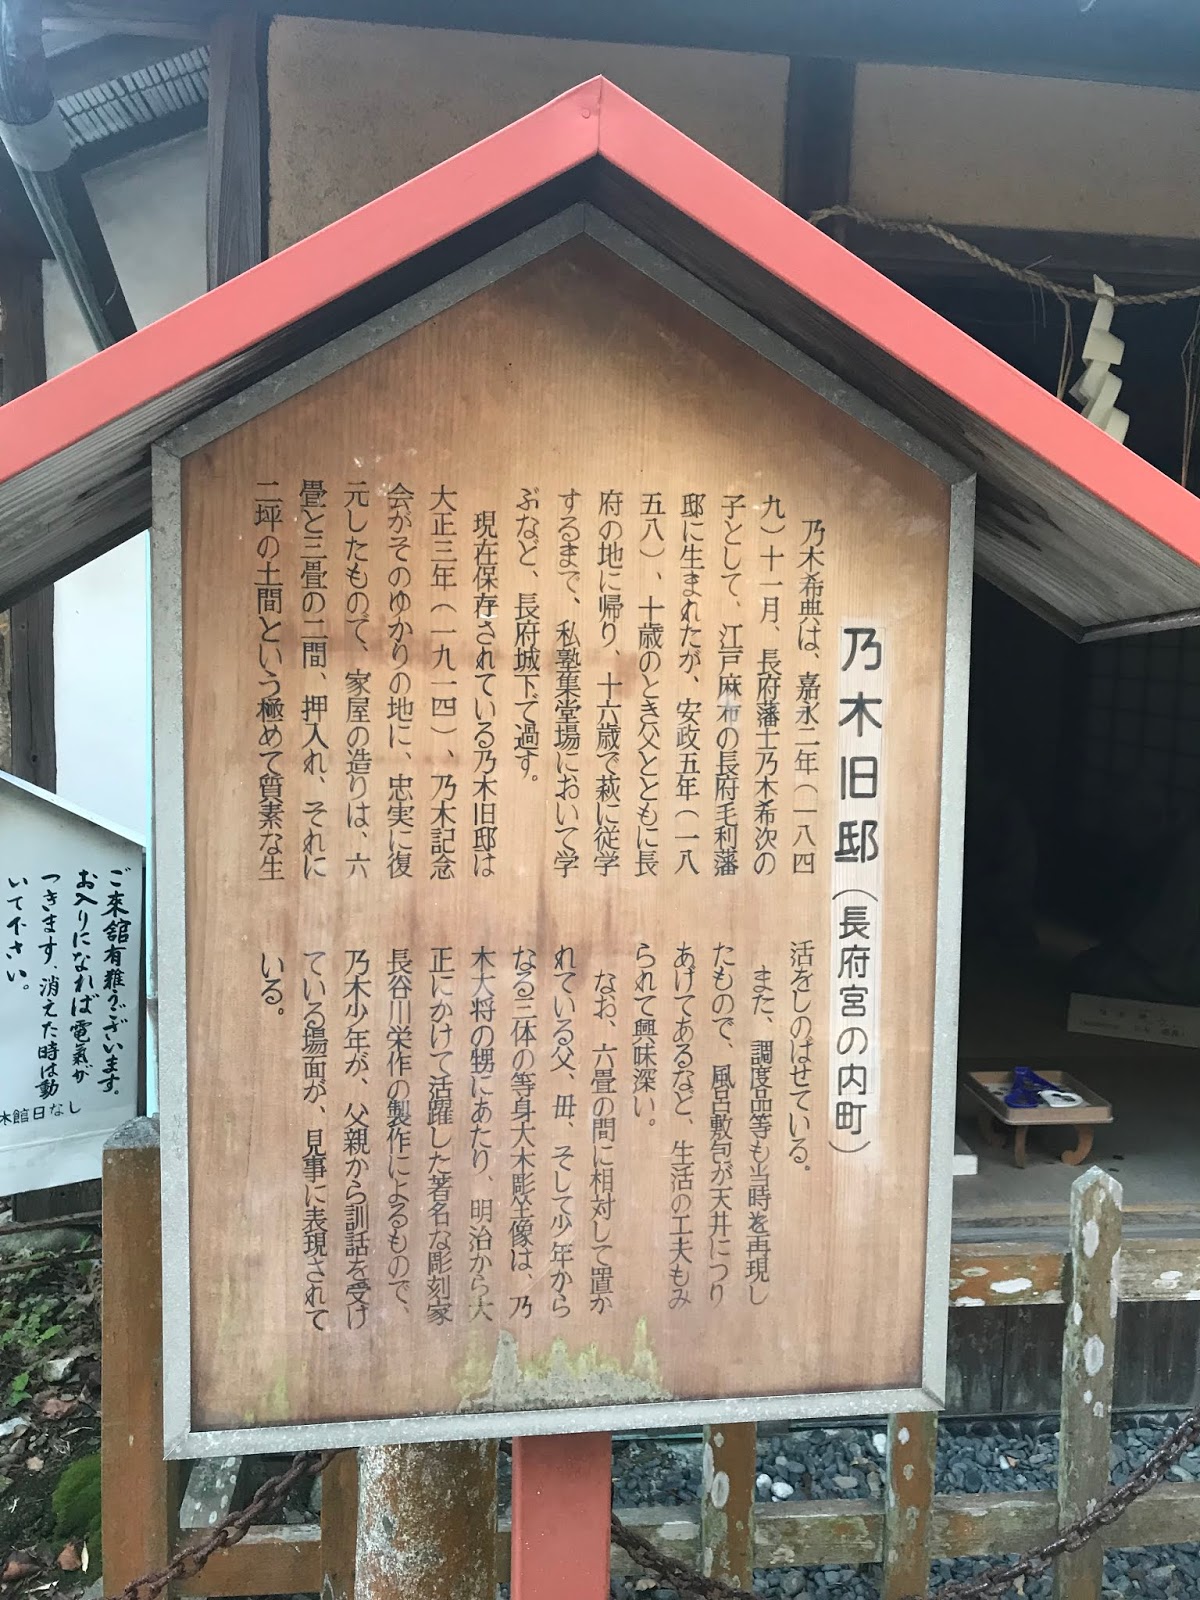 乃木旧邸(長府宮の内町)
乃木希典は、嘉永二年(一八四
九)十一月、長府藩士乃木希次の
子として、江戸麻布の長府毛利藩
邸に生まれたが、安政五年(一八
五八)、十歳のとき父とともに長
府の地に帰り、十六歳で萩に従学
するまで、私塾集堂場において学
ぶなど、長府城下で過す。
現在保存されている乃木旧邸は
大正三年(一九一四)、乃木記念
会がそのゆかりの地に、忠実に復
元したもので、家屋の造りは、六
畳と三畳の二間、押入れ、それに
二坪の土間という極めて質素な生
活をしのばせている。
また、調度品等も当時を再現し
たもので、風呂敷包が天井につり
あげてあるなど、生活の工夫もみ
られて興味深い。
なお、六畳の間に相対して置か
れている父、毌、そして少年から
なる三体の等身大木彫坐像は、乃
木大将の甥にあたり、明治から大
正にかけて活躍した著名な彫刻家
長谷川栄作の製作によるもので、
乃木少年が、父親から訓話を受け
ている場面が、見事に表現されて
いる。
ご来館有難うございます。
お入りになれば電氣が
つきます、消えた時は動
いて下さい。
休館日なし